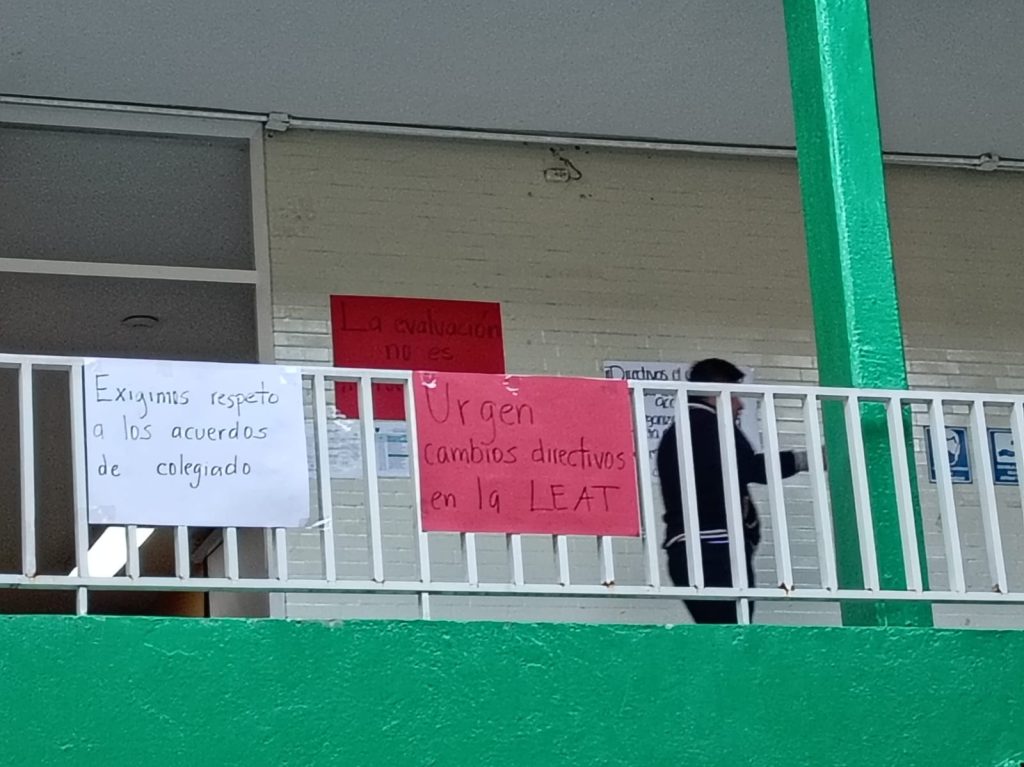 Exigimos respeto
a los acuerdos
de colegiado
La evaluación
no es
Urgen
cambios directivos
en la LEAT
¡Directivos el